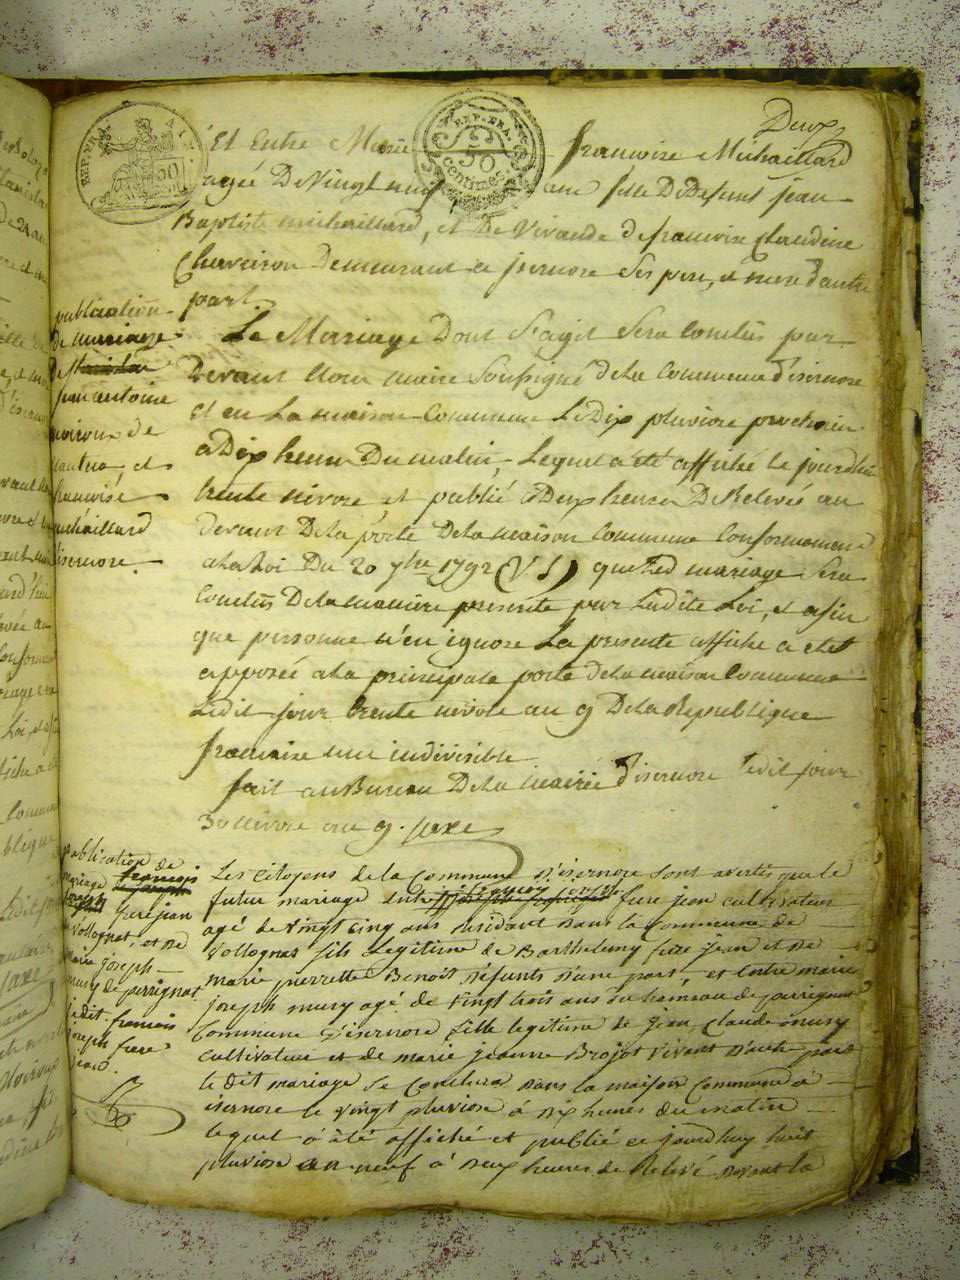 Deux
REP. FRA.
50
REP. FRA.
50
Centimes
Et Entre Marie francoise Michaillard
agée De Vingt neuf ans fille De Defunt jean
Baptiste michaillard, et De Vivande De francoise Claudine
Demeurant a jsernore Ses pere, et mere D'autre
part.
Le Mariage Dont S'agit Sera Conclus par
Devant Nous maire Soussigné De La Commune d'isernore
et en La maison Commune Le Dix pluviose prochain
a Dix heures Du matin, Lequel a été affiché Le jourd'hui
trente nivose et publié a Deux heures De Relevée au
Devant De La porte De la maison Commune Conformement
a la Loi Du 20 7bre 1792 (V S) que Led mariage Sera
Conclus De la maniere presente par Ladite Loi, et afin
que personne n'en ignore La presente affiche a eté
apposée a la principale porte De la maison Commune
Ledit jour trente nivose an 9 De la Republique
francaise une indivisible
fait au Bureau De la mairie D'isernore Ledit jour
30 nivose an 9.
publication
de mariage
de
jean antoine
de
nantua, et
francoise
michaillard
disernore.
Les Citoyens de la Commune D'isernore sont avertis que le
futur mariage entre francois joseph fure jean cultivateur
agé de vingt cinq ans residant Dans la Commune de
Vollognat fils Legitime de Barthelemy fure jean et De
marie pierrette Benoit Defunts D'une part, et Entre marie
joseph mury agé de vingt trois ans Du hameau de perrignat
Commune D'isernore fille legitime de jean Claude mury
cultivateur et de marie jeanne Brojot vivant D'autre part
le dit mariage se Conclura Dans la maison Commune d
isernore le vingt pluviose à Dix heures du matin
lequel à été affiché et publié ce jourdhuy huit
pluviose an neuf à Deux heures de Relevé Devant la
publication de
mariage francois
joseph fure jean
Vollognat, et De
marie joseph
mury de perrignat
ledit francois
joseph fure
jean.